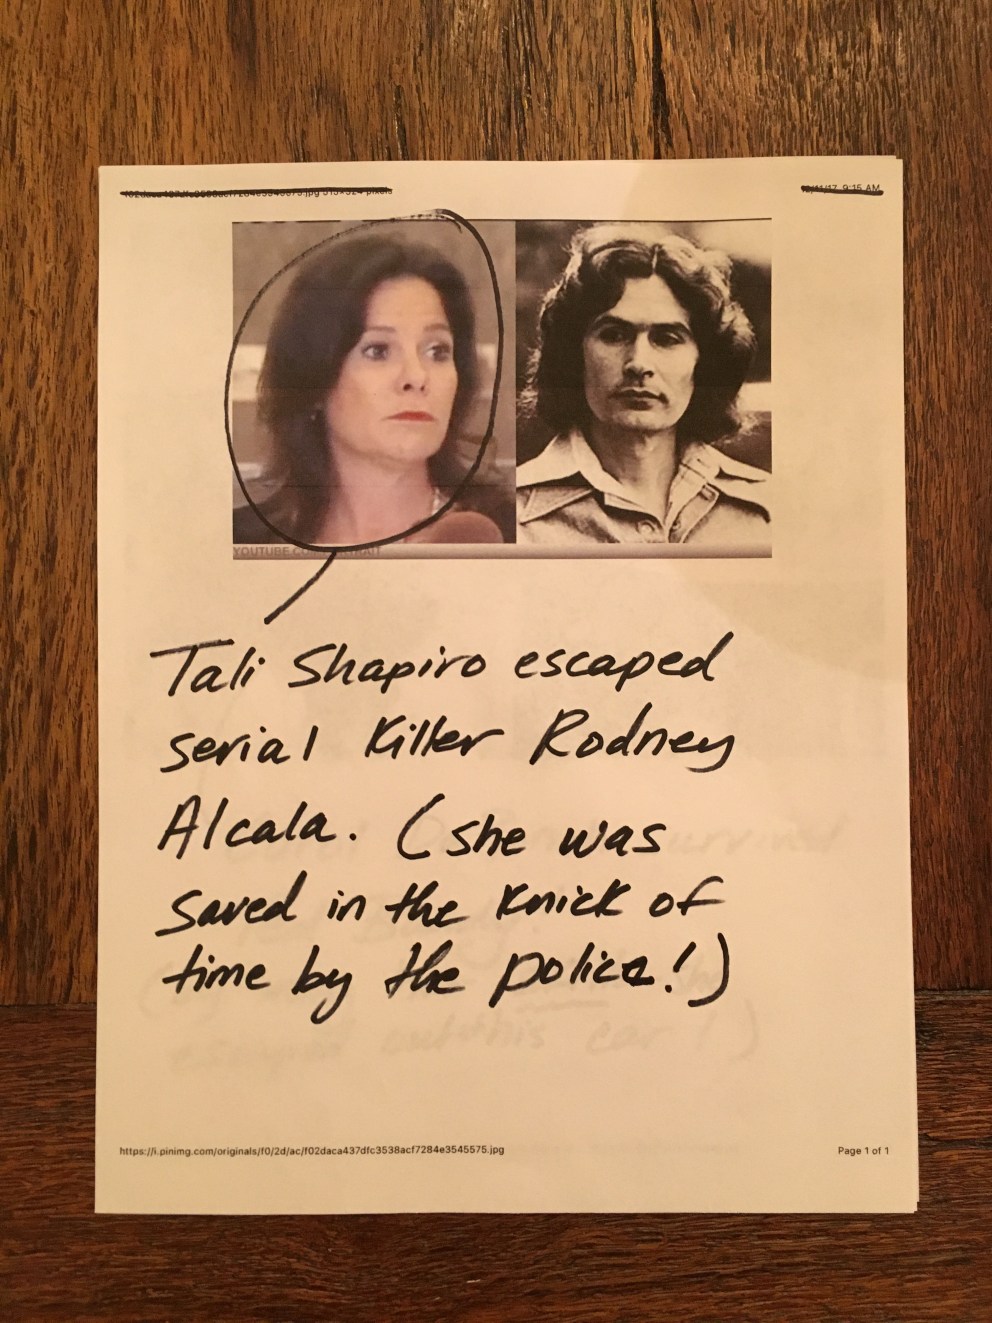 YOUTUBE.CO
Tali Shapiro escaped
serial Killer Rodney
Alcala. (she was
saved in the Knick of
time by the police!)
https://i.pinimg.com/originals/f0/2d/ac/f02daca437dfc3538acf7284e3545575.jpg
Page 1 of 1